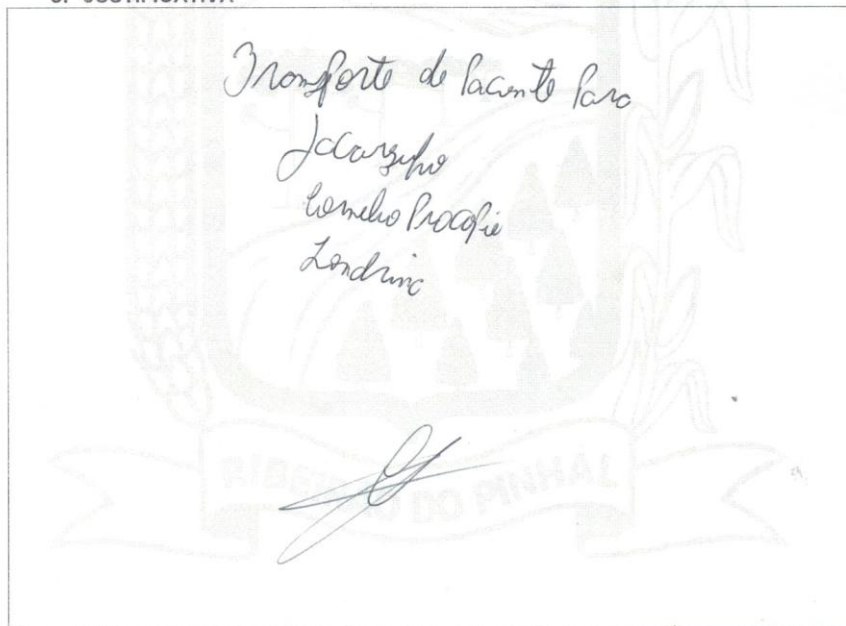 JUSTIFICATIVA
Transporte de Paciente Para
Jacarezinho
Cornelio Procopio
Londrina
RIBEIRÃO DO PINHAL